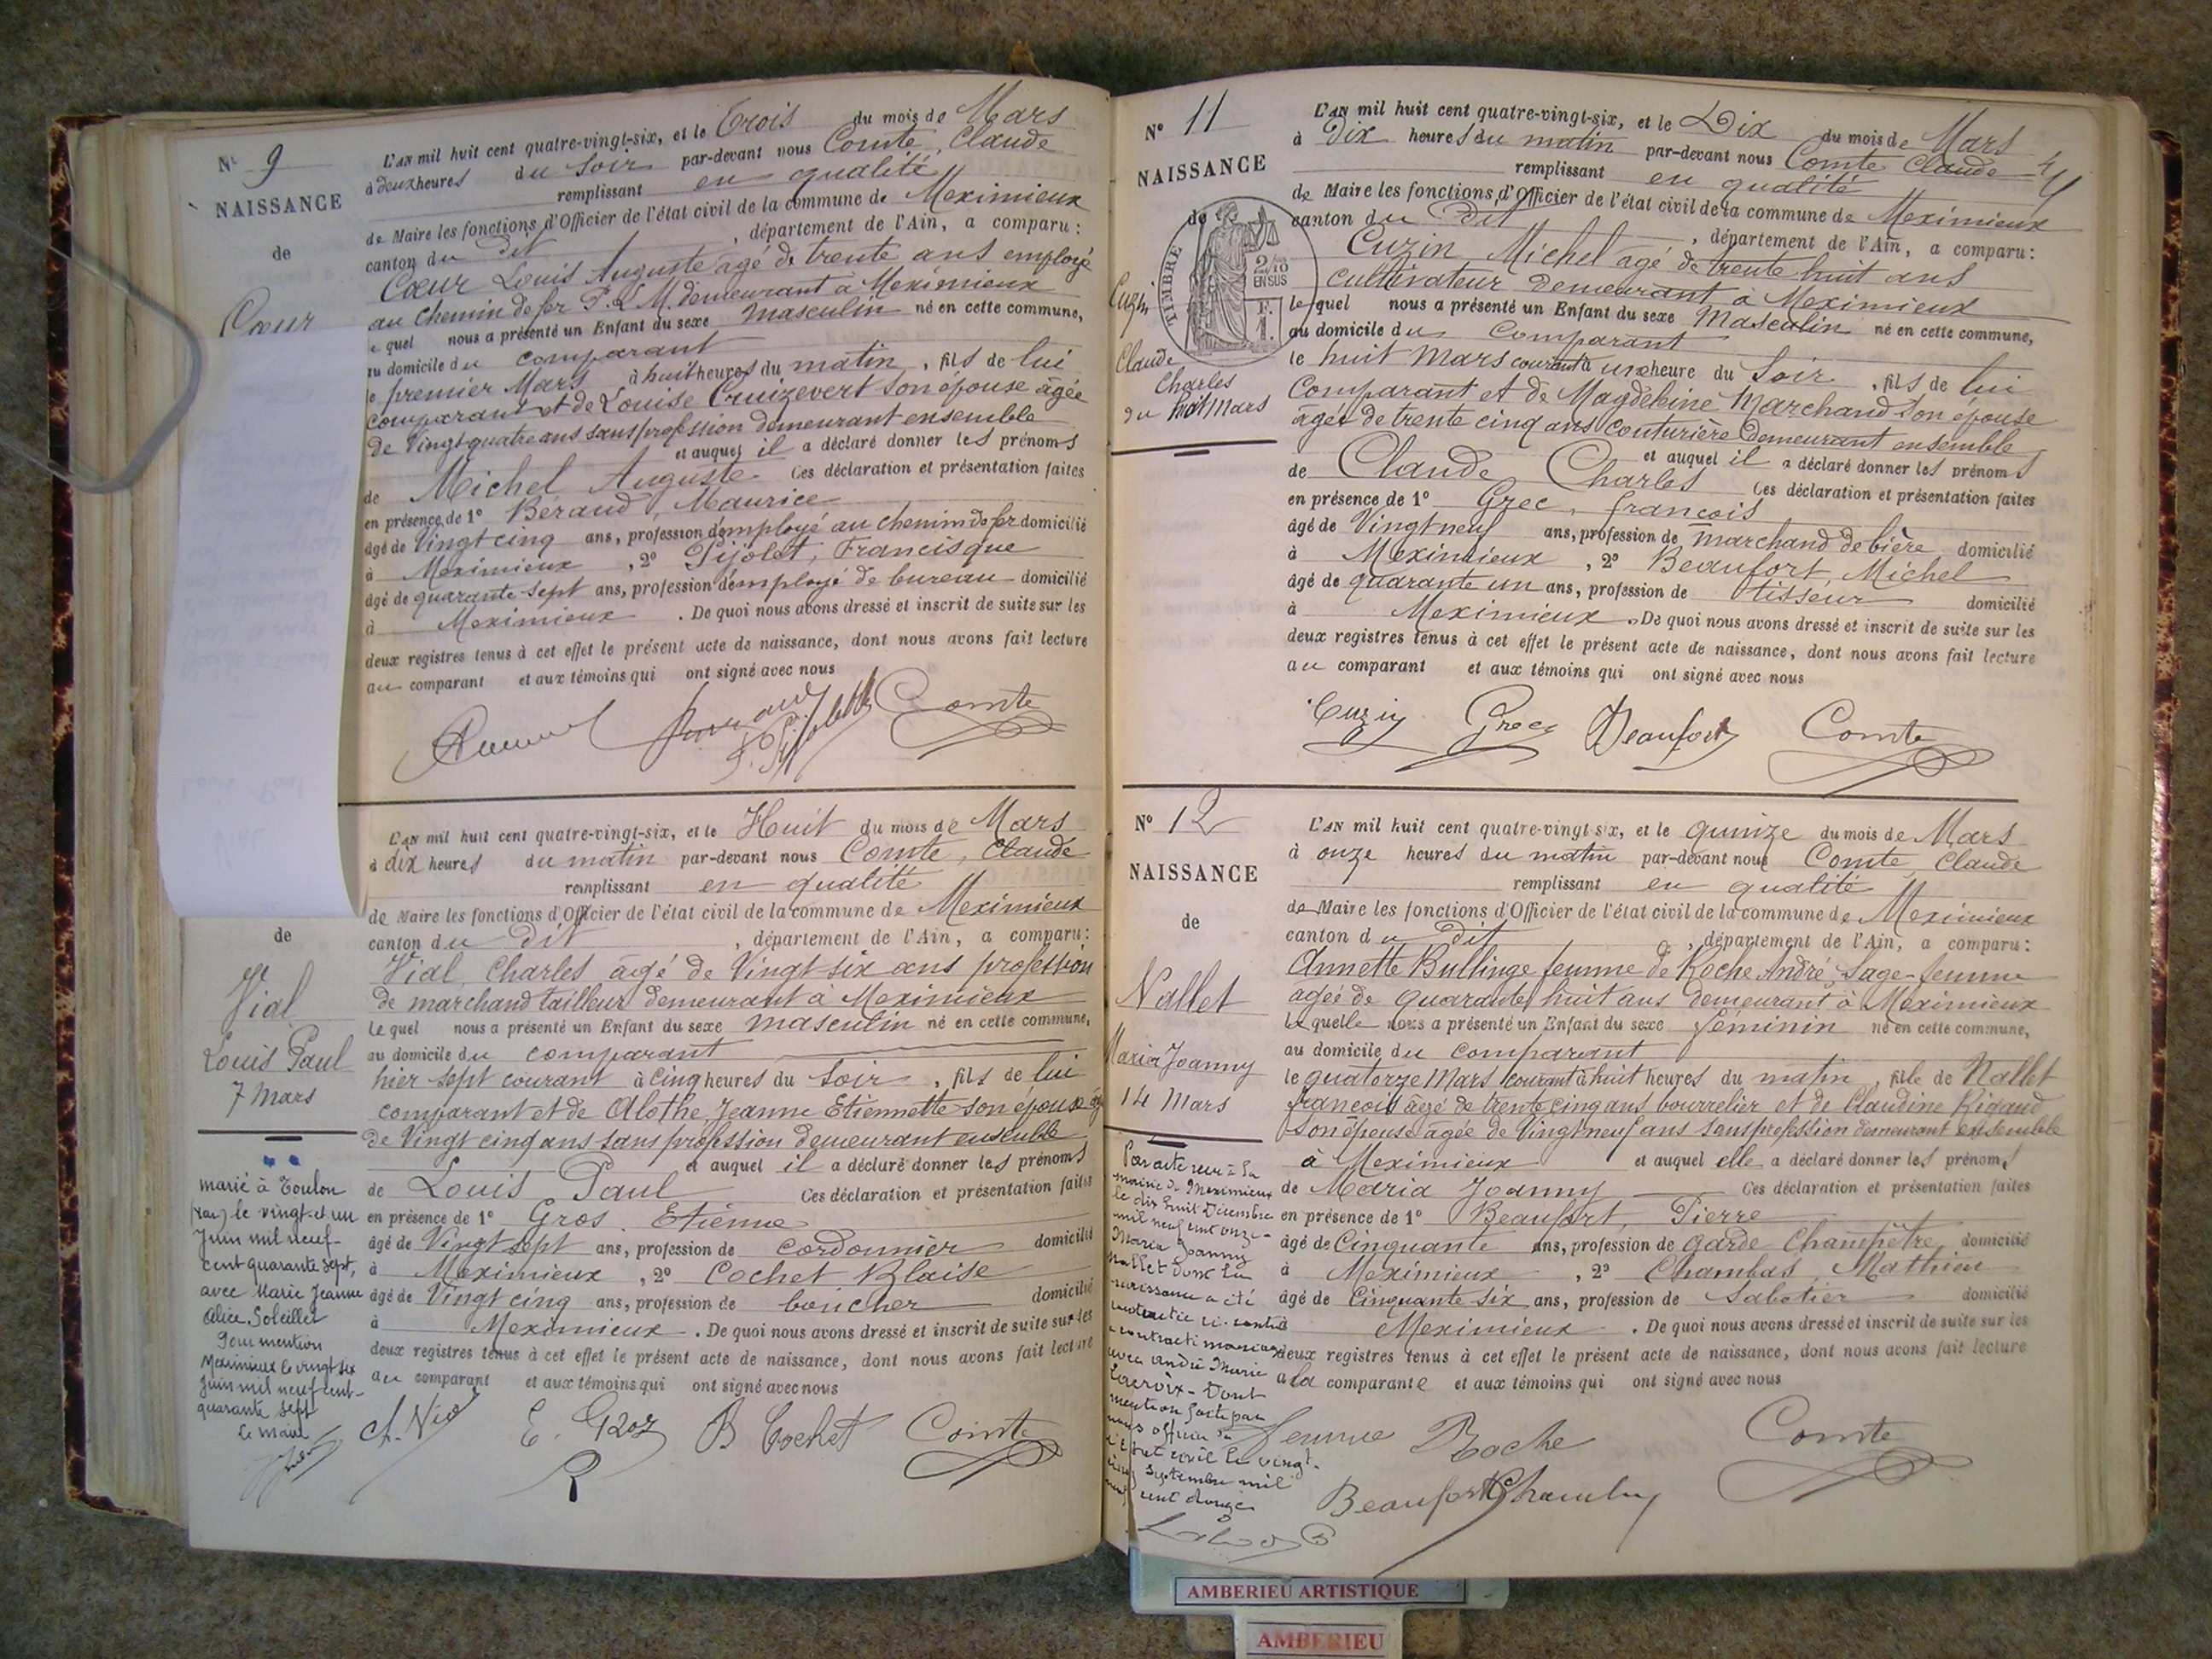 N° 9
NAISSANCE
de
Cœur
L'AN mil huit cent quatre-vingt-six, et le Trois du mois de Mars
à deux heures du Soir par-devant nous Comte, Claude
remplissant en qualité
de Maire les fonctions d'Officier de l'état civil de la commune de Meximieux
canton du dit , département de l'Ain, a comparu :
Cœur Louis Auguste âgé de trente ans employé
au chemin de fer P. L. M. demeurant à Meximieux
quel nous a présenté un Enfant du sexe masculin né en cette commune,
au domicile du comparant
le premier Mars à huit heures du matin, fils de lui
comparant et de Louise Cruizevert son épouse âgée
de Vingt quatre ans sans profession demeurant ensemble
et auquel il a déclaré donner les prénoms
de Michel Auguste Ces déclaration et présentation faites
en présence de 1° Béraud, Maurice
âgé de Vingt cinq ans, profession d'employé au chemin de fer domicilié
à Meximieux , 2° Pijolet, Francisque
âgé de quarante sept ans, profession d'employé de bureau domicilié
à Meximieux . De quoi nous avons dressé et inscrit de suite sur les
deux registres tenus à cet effet le présent acte de naissance, dont nous avons fait lecture
au comparant et aux témoins qui ont signé avec nous
Comte
de
Vial
Louis Paul
7 Mars
L'AN mil huit cent quatre-vingt-six, et le Huit du mois de Mars
à dix heures du matin par-devant nous Comte, Claude
remplissant en qualité
de Maire les fonctions d'Officier de l'état civil de la commune de Meximieux
canton du dit , département de l'Ain, a comparu :
Vial, Charles âgé de Vingt six ans profession
de marchand tailleur demeurant à Meximieux
le quel nous a présenté un Enfant du sexe masculin né en cette commune,
au domicile du comparant
hier sept courant à cinq heures du Soir, fils de lui
comparant et de Alothe Jeanne Etiennette son épouse
de Vingt cinq ans sans profession demeurant ensemble
et auquel il a déclaré donner les prénoms
de Louis Paul Ces déclaration et présentation faites
en présence de 1° Gros, Etienne
âgé de Vingt sept ans, profession de cordonnier domicilié
à Meximieux , 2° Cochet Blaise
âgé de Vingt cinq ans, profession de boucher domicilié
à Meximieux . De quoi nous avons dressé et inscrit de suite sur les
deux registres tenus à cet effet le présent acte de naissance, dont nous avons fait lecture
au comparant et aux témoins qui ont signé avec nous
E. Gros B Cochet Comte
marié à Toulon
(Var) le vingt-et un
Juin mil neuf-
cent quarante sept,
avec Marie Jeanne
Alice, Soleillet
Pour mention
Meximieux le vingt six
Juin mil neuf cent-
quarante sept
Le Maire
N° 11
NAISSANCE
de
TIMBRE
2/10
EN SUS
F.
1.
Cuzin
Claude
Charles
du huit Mars
L'AN mil huit cent quatre-vingt-six, et le Dix du mois de Mars
à Dix heures du matin par-devant nous Comte Claude
remplissant en qualité
de Maire les fonctions d'Officier de l'état civil de la commune de Meximieux
canton du Dit , département de l'Ain, a comparu :
Cuzin Michel âgé de trente huit ans
cultivateur demeurant à Meximieux
le quel nous a présenté un Enfant du sexe Masculin né en cette commune,
au domicile du Comparant
le huit Mars courant à une heure du Soir, fils de lui
Comparant et de Magdeleine Marchand son épouse
âgée de trente cinq ans Couturière Demeurant ensemble
et auquel il a déclaré donner les prénoms
de Claude Charles Ces déclaration et présentation faites
en présence de 1° Grec, francois
âgé de Vingt neuf ans, profession de marchand de bière domicilié
à Meximieux , 2° Beaufort, Michel
âgé de quarante un ans, profession de tisseur domicilié
à Meximieux . De quoi nous avons dressé et inscrit de suite sur les
deux registres tenus à cet effet le présent acte de naissance, dont nous avons fait lecture
au comparant et aux témoins qui ont signé avec nous
Cuzin Grec Beaufort Comte
N° 12
NAISSANCE
de
Nallet
Maria Joanny
14 Mars
L'AN mil huit cent quatre-vingt six, et le quinze du mois de Mars
à onze heures du matin par-devant nous Comte Claude
remplissant en qualité
de Maire les fonctions d'Officier de l'état civil de la commune de Meximieux
canton du dit , département de l'Ain, a comparu :
Annette Bullinge femme de Roche André, Sage-femme
agée de quarante huit ans demeurant à Meximieux
la quelle nous a présenté un Enfant du sexe féminin né en cette commune,
au domicile du comparant
le quatorze Mars courant à huit heures du matin, fille de Nallet
francois âgé de trente cinq ans bourrelier et de Claudine Rigaud
son épouse agée de Vingt neuf ans sans profession demeurant ensemble
à Meximieux et auquel elle a déclaré donner les prénoms
de Maria Joanny Ces déclaration et présentation faites
en présence de 1° Beaufort, Pierre
âgé de Cinquante ans, profession de garde Champêtre domicilié
à Meximieux , 2° Chambas, Mathieu
âgé de Cinquante six ans, profession de Sabotier domicilié
à Meximieux . De quoi nous avons dressé et inscrit de suite sur les
deux registres tenus à cet effet le présent acte de naissance, dont nous avons fait lecture
à la comparante et aux témoins qui ont signé avec nous
femme Roche Comte
Beaufort
Par acte reçu à la
mairie de Meximieux
le dix huit Décembre
mil neuf cent onze -
Maria Joanny
Nallet dont la
naissance a été
ci-contre
a contracté mariage
avec André Marie
Lacroix - Dont
mention faite par
nous officier de
l'Etat civil le vingt-
Septembre mil
cent douze
AMBERIEU ARTISTIQUE
AMBERIEU